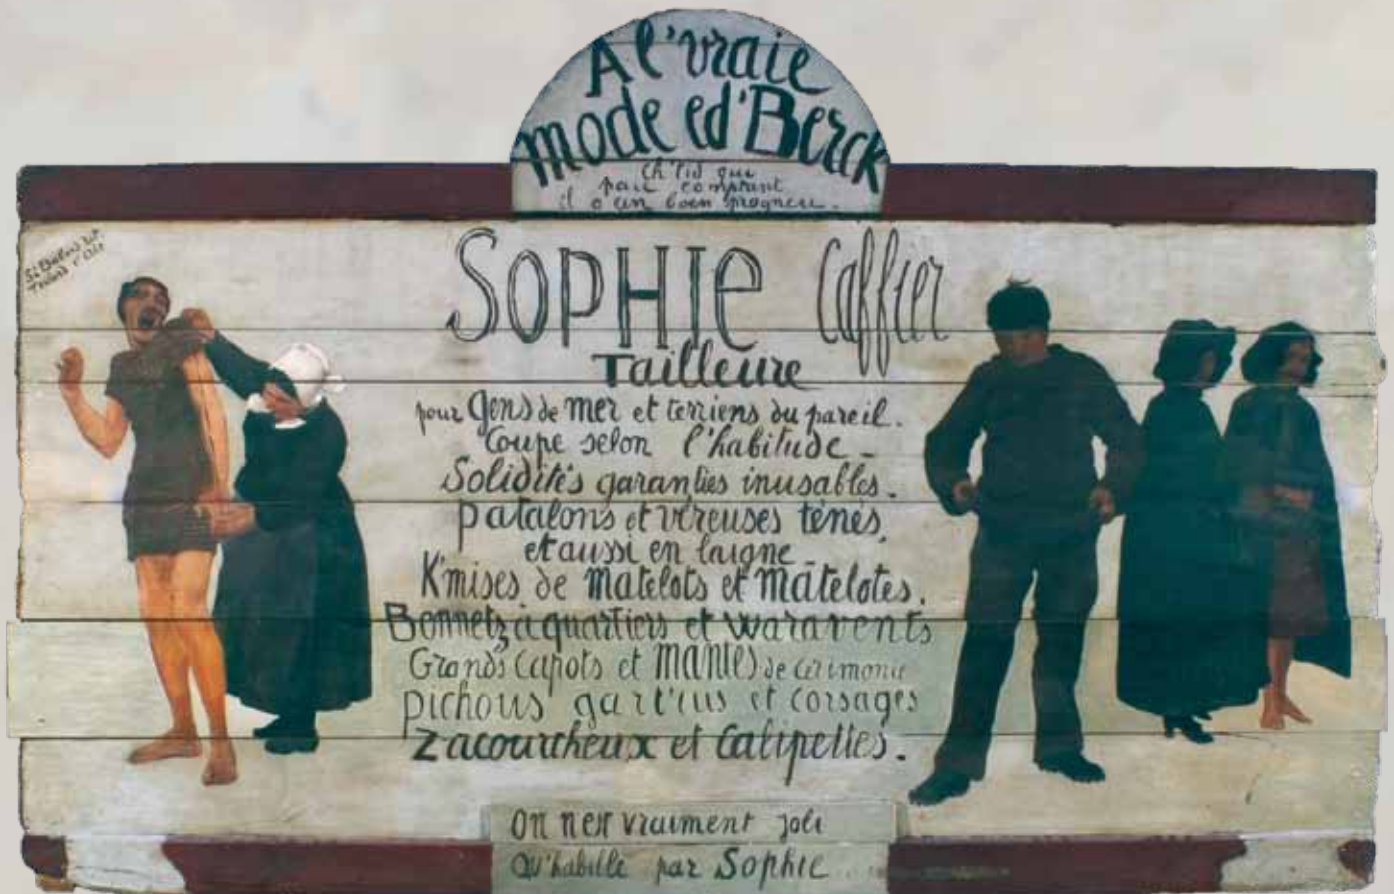 A l'vraie
mode ed'Berck
Ch'tid qui
paie comptant
il o'cin boen
SOPHIE Caffier
Tailleure
pour Gens de mer et terriens du pareil.
Coupe selon l'habitude -
Solidités garanties inusables.
patalons et vêreuses tênès,
et aussi en laigne
K'mises de Matelots et matelotes.
Bonnetz à quartiers et waravents
Grands Capots et Mantes de cérimonie
pichous gart'ius et corsages
Zacourcheux et Calipettes.
On n'est vraiment joli
Qu'habillé par Sophie